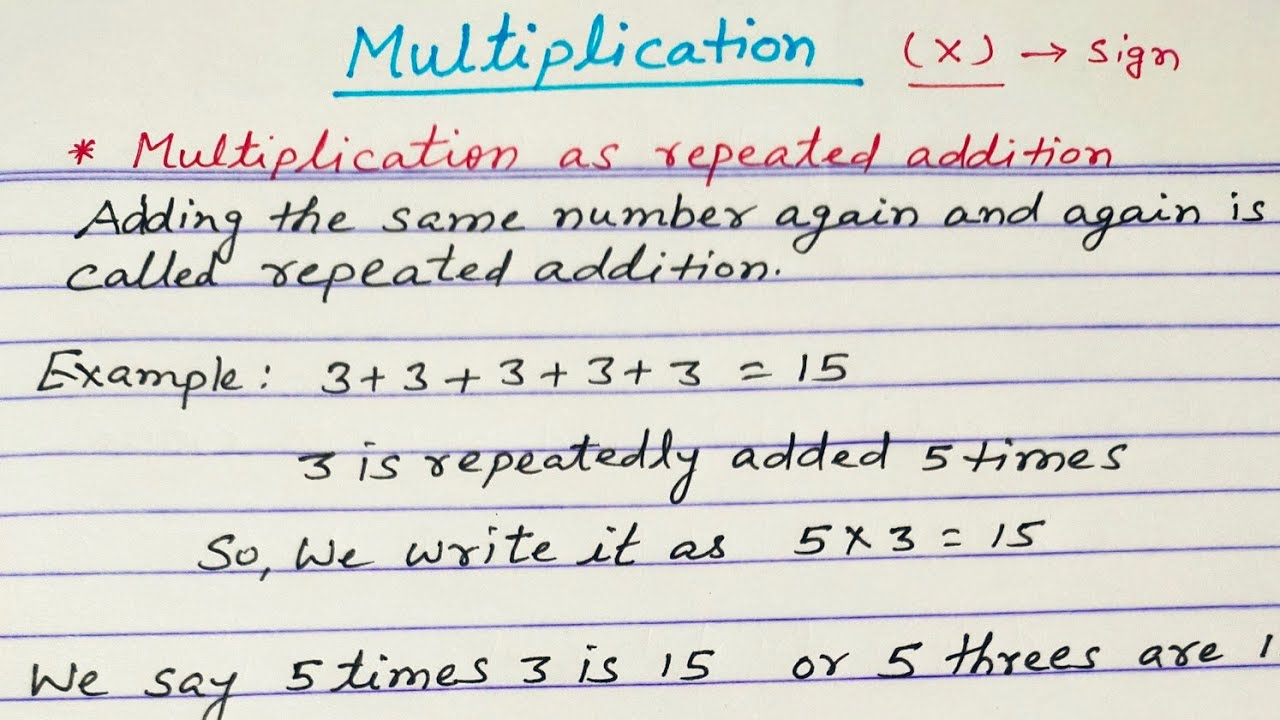 Multiplication (x) → Sign
* Multiplication as repeated addition
Adding the same number again and again is
called repeated addition.
Example: 3+3+3+3+3 = 15
3 is repeatedly added 5 times
So, We write it as 5×3 = 15
We say 5 times 3 is 15 or 5 threes are 1